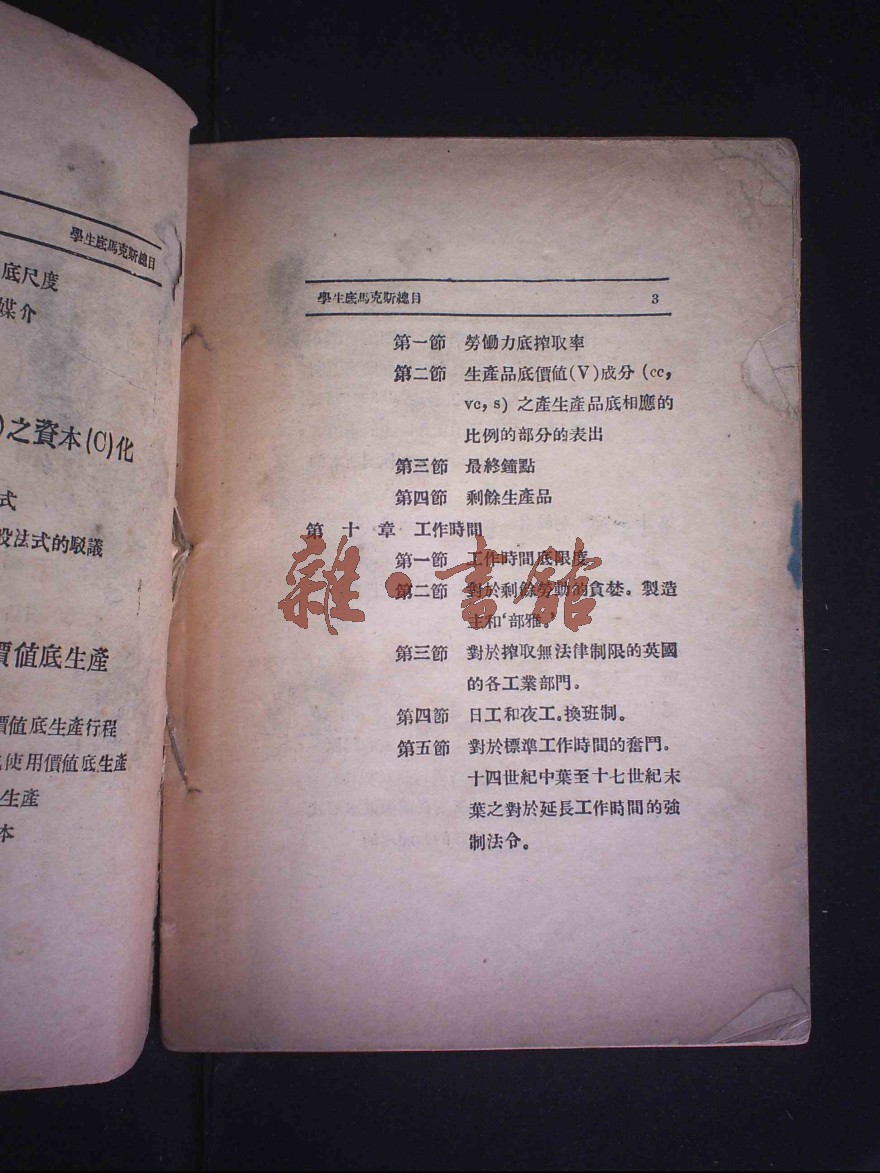 學生底馬克斯總目
底尺度
媒介
)之資本(C)化
式
法式的駁議
價値底生產
價値底生產行程
使用價値底生產
生產
本
學生底馬克斯總目 3
第一節 勞働力底搾取率
第二節 生產品底價値(V)成分 (cc,
vc, s) 之產生產品底相應的
比例的部分的表出
第三節 最終鐘點
第四節 剩餘生產品
第十章 工作時間
第一節 工作時間底限度
第二節 對於剩餘勞動的貪婪。製造
主和‘部雅。’
第三節 對於搾取無法律制限的英國
的各工業部門。
第四節 日工和夜工。換班制。
第五節 對於標準工作時間的奮鬥。
十四世紀中葉至十七世紀末
葉之對於延長工作時間的強
制法令。
雜·書館